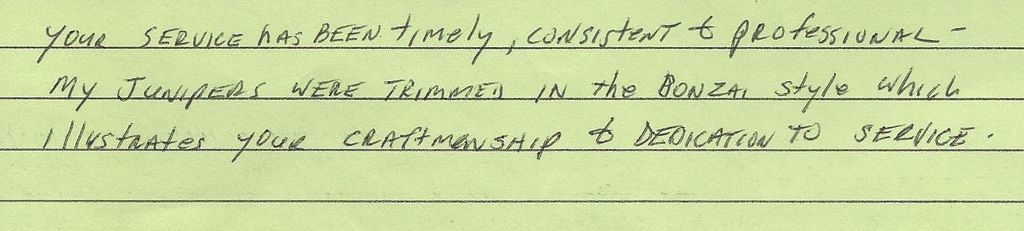 YOUR SERVICE hAS BEEN timely, CONSISTENT & PROfESSIONAL -
MY JUNIPERS WERE TRIMMED IN the BONZAI style which
IllustRAtes YOUR CRAftmANSHIP & DEDICATION TO SERVICE.